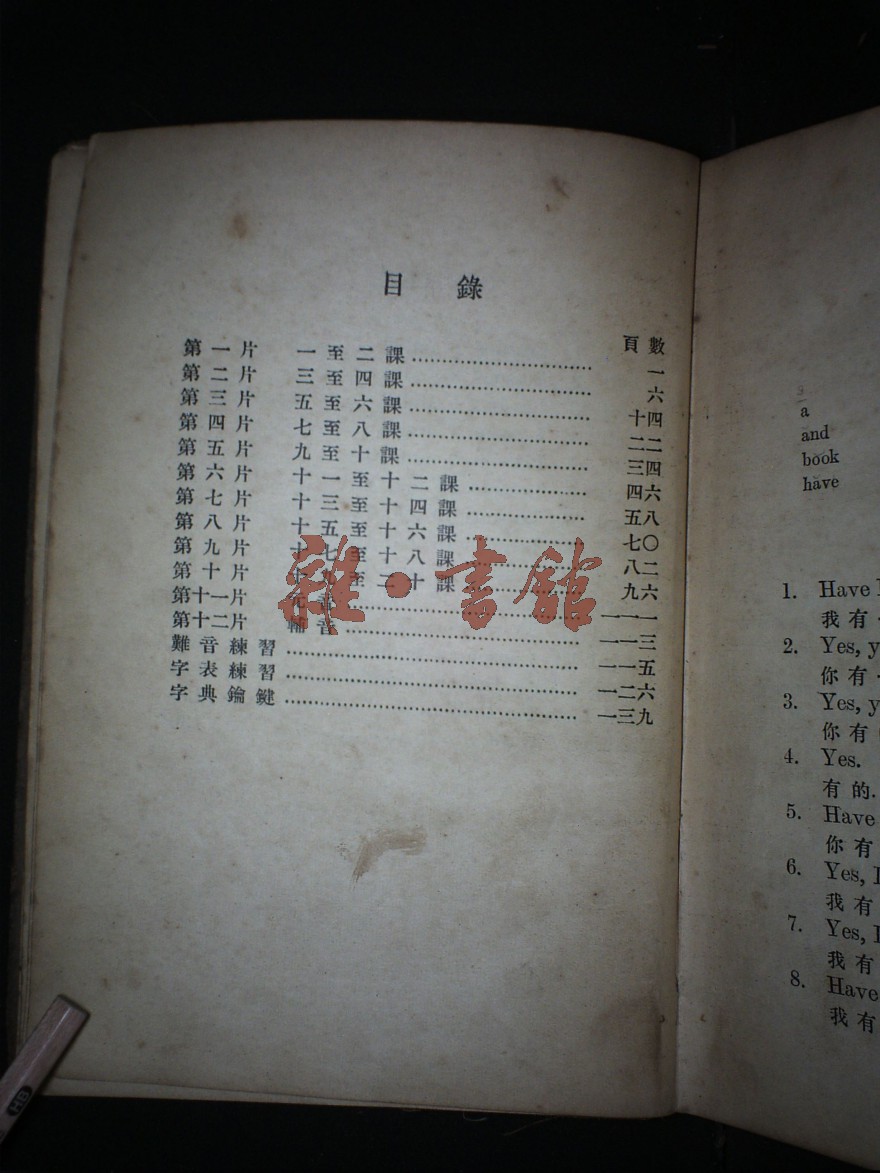 目錄
頁數
第一片 一至二課 一
第二片 三至四課 六
第三片 五至六課 十四
第四片 七至八課 二二
第五片 九至十課 三四
第六片 十一至十二課 四六
第七片 十三至十四課 五八
第八片 十五至十六課 七〇
第九片 十七至十八課 八二
第十片 十九至二十課 九六
第十一片 元音 一一一
第十二片 輔音 一一三
難音練習 一一五
字表練習 一二六
字典鑰鍵 一三九
雜·書館
HB
a
and
book
have
1. Have I
我有
2. Yes, y
你有
3. Yes, y
你有
4. Yes.
有的.
5. Have
你有
6. Yes, I
我有
7. Yes, I
我有
8. Have
我有